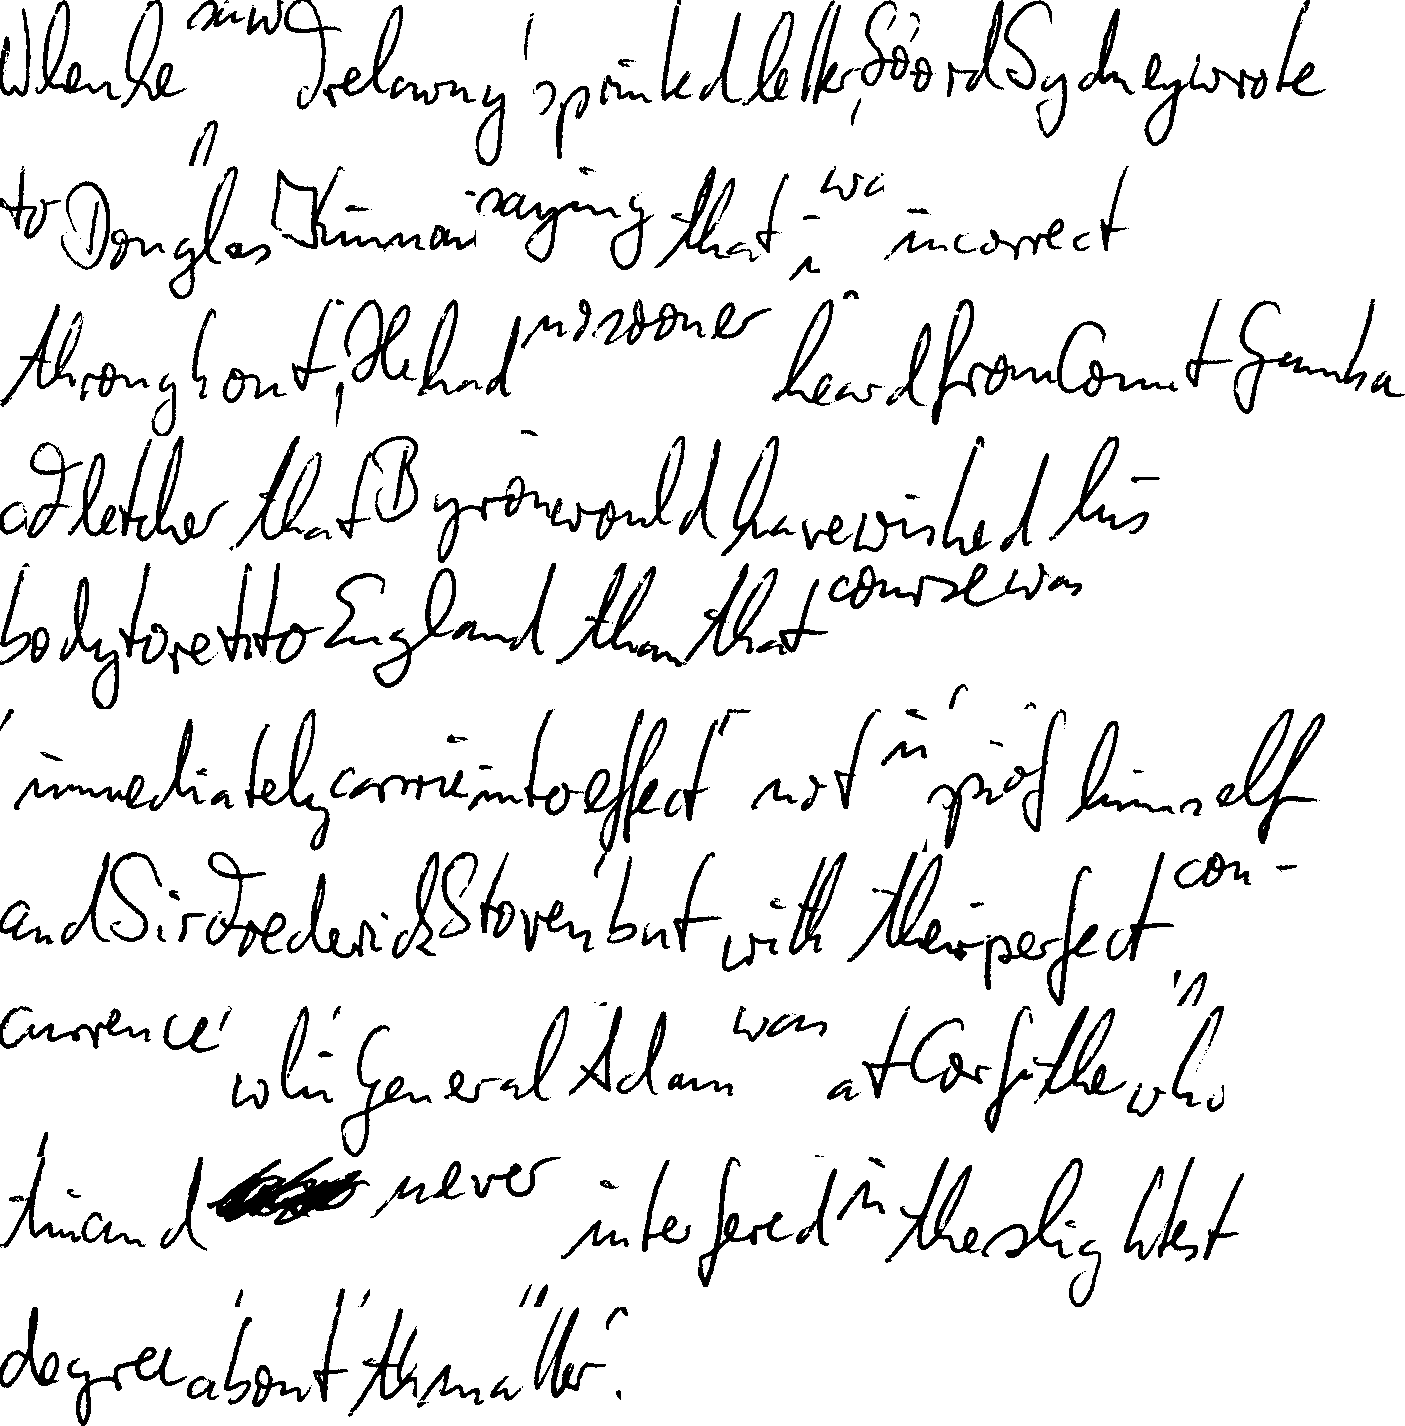 When he saw Trelawny's printed letter, Lord Sydney wrote
to Douglas Kinnai saying that i wa incorrect
throughout, He had no sooner heard from Count Gamba
ad Fletcher that Byron would have wished his
body to retito England than that course was
immediately carrie into effect not in spiof himself
and Sir Frederick Stoven but with their perfect con-
currence whi General Adam was at Corfu the who
tim and never interfered in the slightest
degree about th matter.